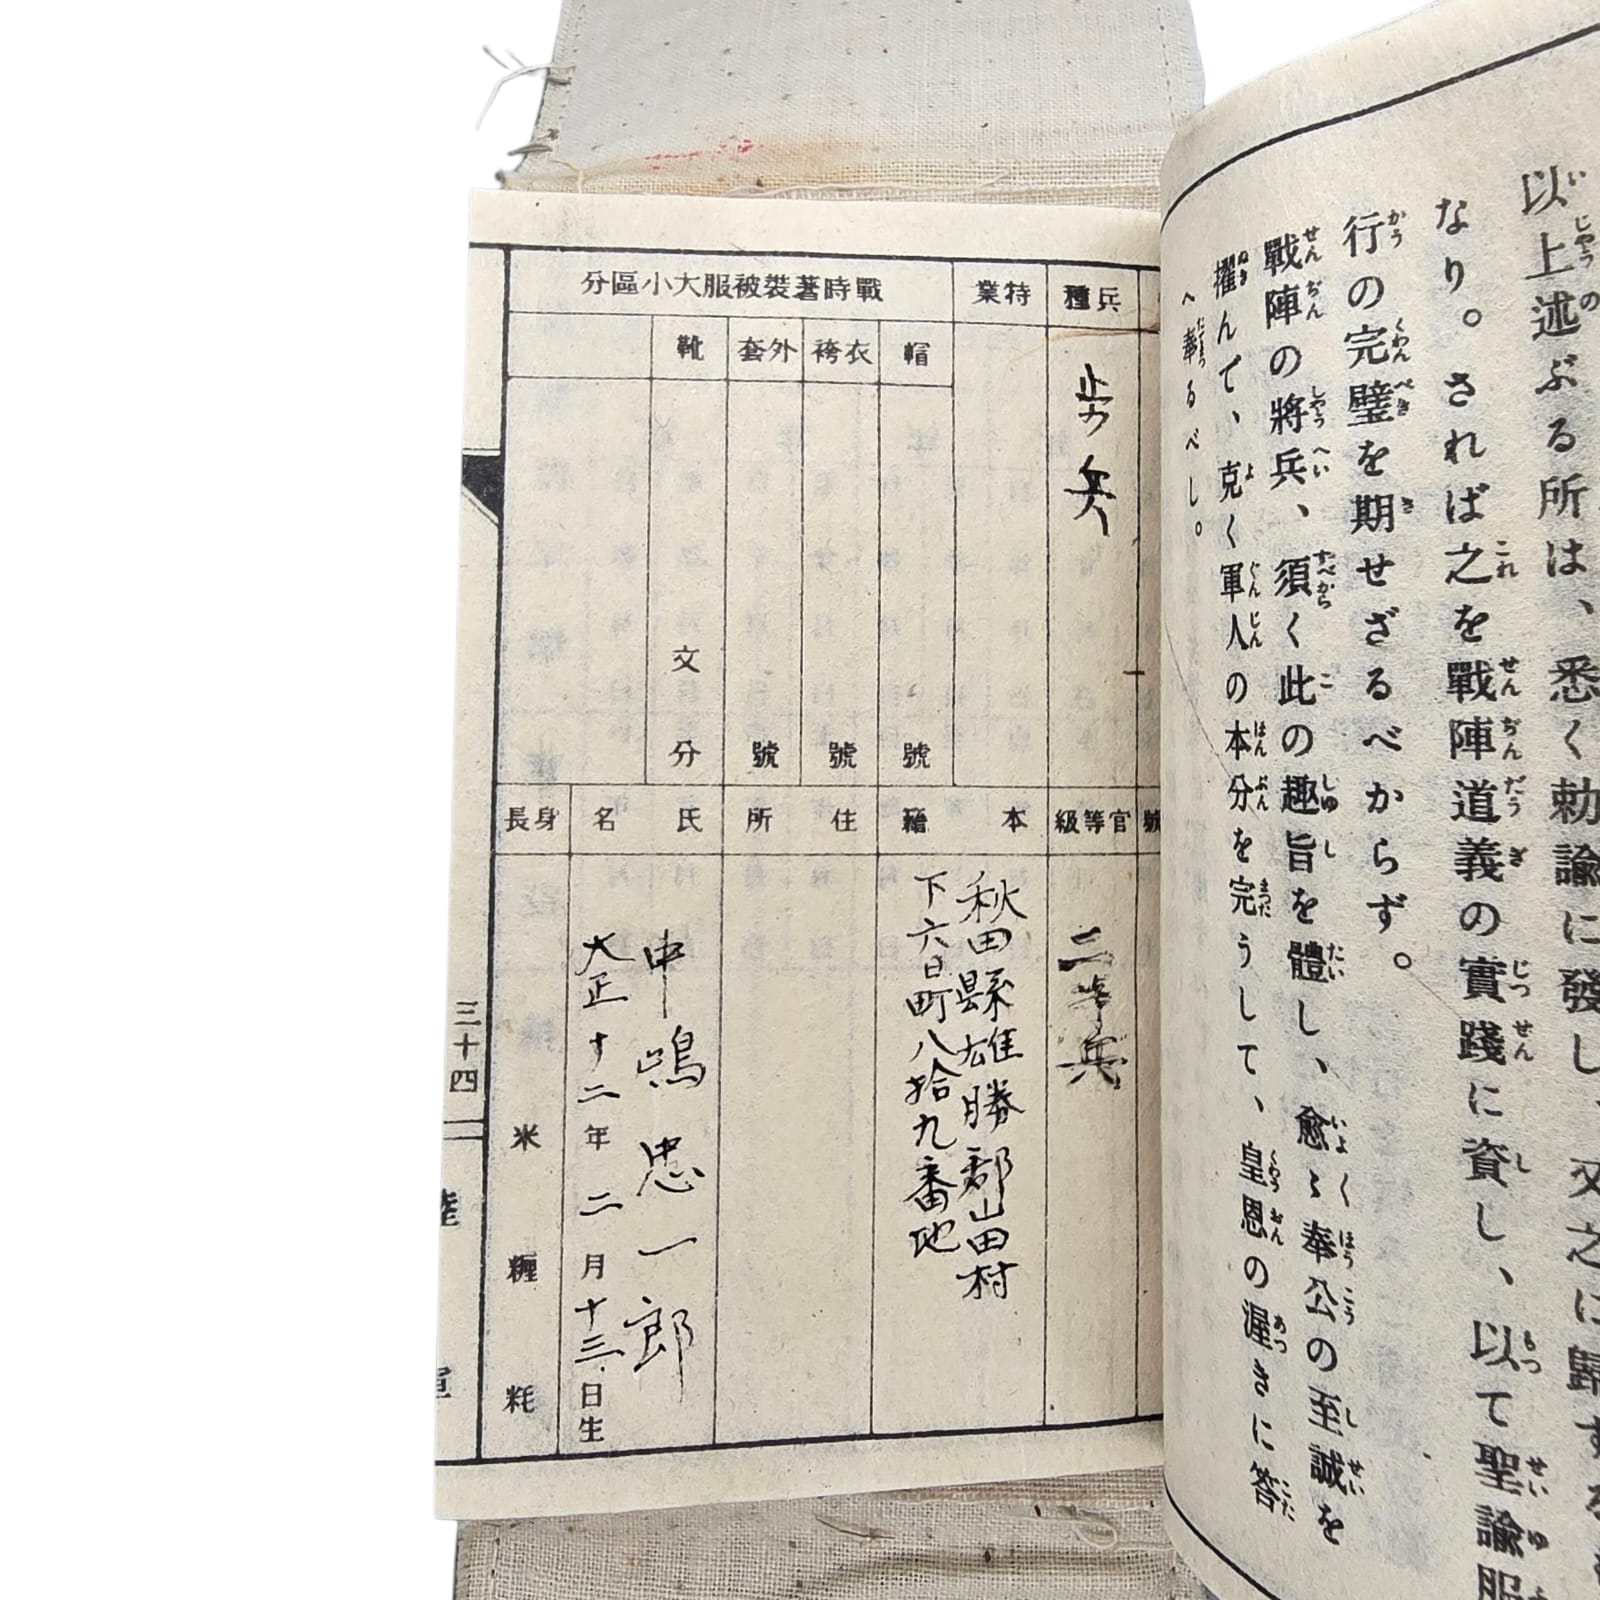 以上述ぶる所は、悉く勅諭に發し、又之に歸する
なり。されば之を戰陣道義の實踐に資し、以て聖諭服
行の完璧を期せざるべからず。
戰陣の將兵、須く此の趣旨を體し、愈〻奉公の至誠を
擢んで、克く軍人の本分を完うして、皇恩の渥きに答
へ奉るべし。
號
兵種
歩兵
官等級
二等兵
特業
本籍
秋田縣雄勝郡山田村
下六日町八拾九番地
戰時著裝被服大小區分
帽
號
衣袴
號
外套
號
靴
文
分
住所
氏名
中嶋忠一郎
大正十二年二月十三日生
身長
米
糎
粍
三十四
陸